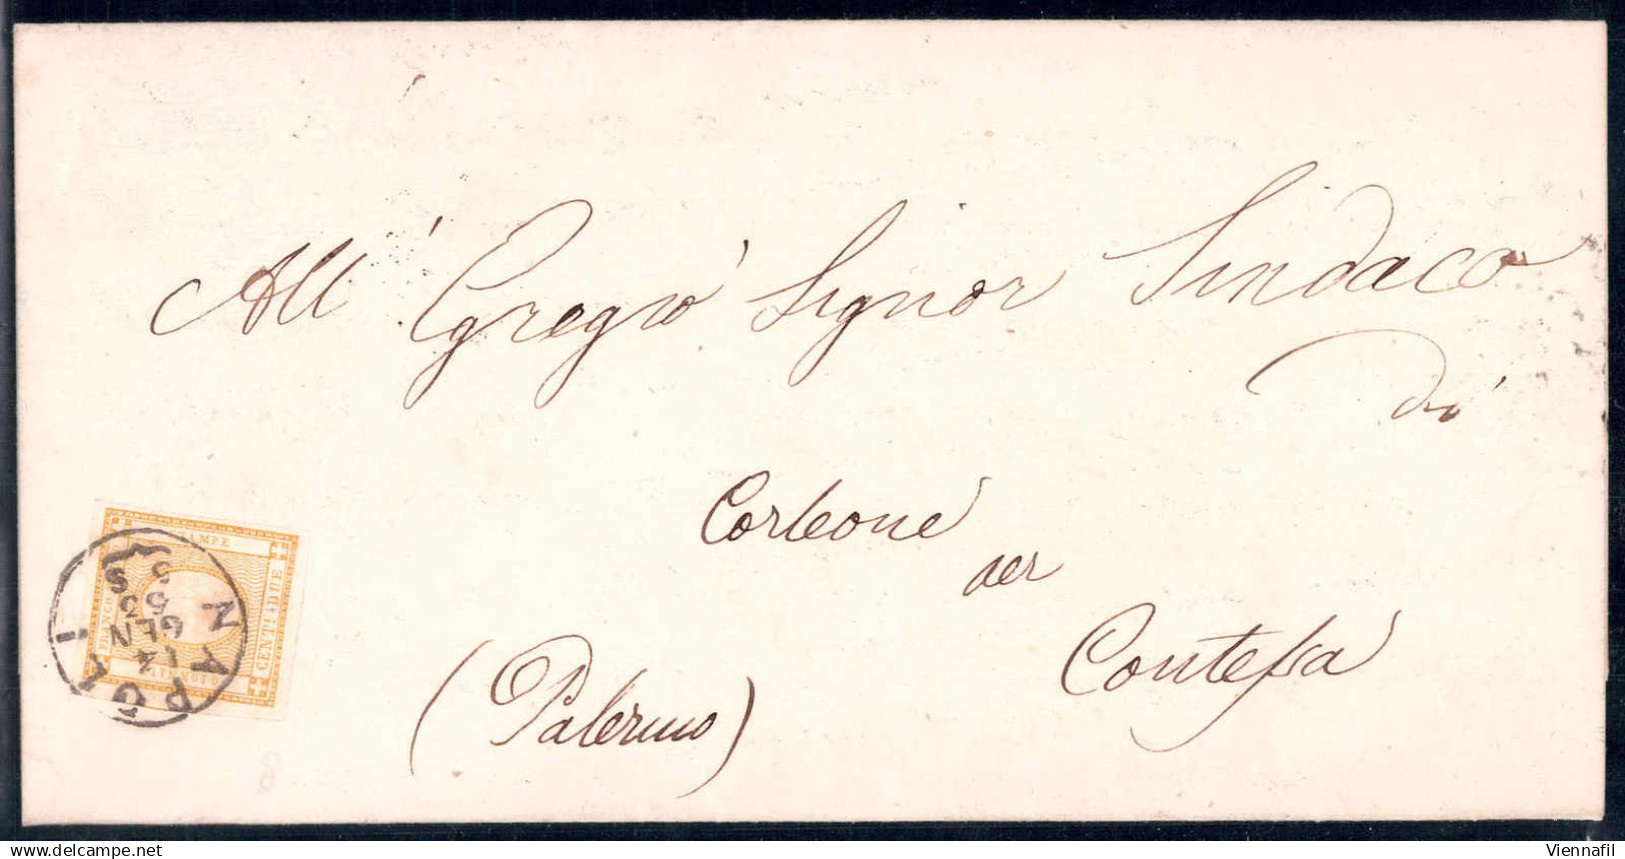 All' Egregio Signor Sindaco
di
Corleone
per
Contessa
(Palermo)
STAMPE
FRANCO
CENT. DUE
NAPOLI
14
GEN
5 S
delcampe.net
Viennafil